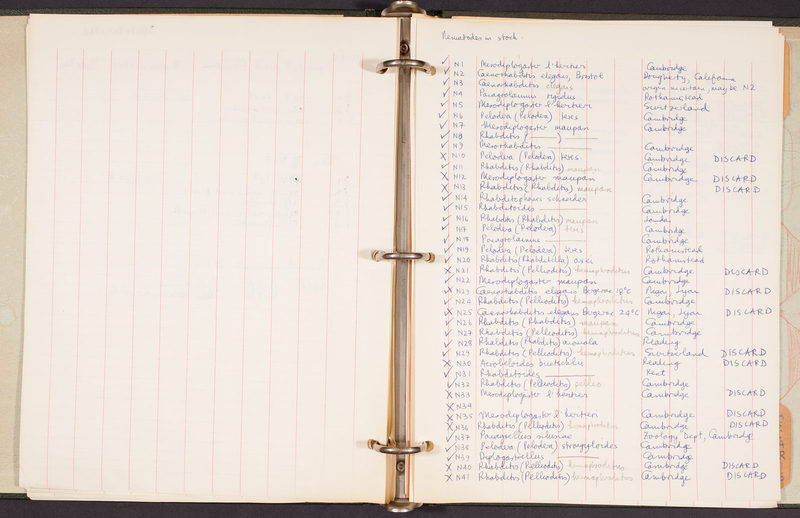 Nematodes in stock.
✓ N1 Mesodiplogaster l'heritieri Cambridge
✓ N2 Caenorhabditis elegans, Bristol Dougherty, California
✓ N3 Caenorhabditis elegans origin uncertain, may be N2
✓ N4 Panagrolaimus rigidus Rothamstead
✓ N5 Mesodiplogaster l'heritieri Switzerland
✓ N6 Pelodera (Pelodera) teres Cambridge
✓ N7 Mesodiplogaster maupasi Cambridge
✓ N8 Rhabditis (———) ———
✓ N9 Mesorhabditis ——— Cambridge
X N10 Pelodera (Pelodera) teres Cambridge DISCARD
✓ N11 Rhabditis (Rhabditis) maupasi Cambridge
X N12 Mesodiplogaster maupasi Cambridge DISCARD
X N13 Rhabditis (Rhabditis) maupasi DISCARD
✓ N14 Rhabditophanes schneideri Cambridge
✓ N15 Rhabditoides ——— Cambridge
✓ N16 Rhabditis (Rhabditis) maupasi
✓ N17 Pelodera (Pelodera) teres Cambridge
✓ N18 Panagrolaimus ——— Cambridge
✓ N19 Pelodera (Pelodera) teres Rothamstead
✓ N20 Rhabditis (Rhabditella) axei Rothamstead
X N21 Rhabditis (Pellioditis) hermaphroditus Cambridge DISCARD
✓ N22 Mesodiplogaster maupasi Cambridge
X N23 Caenorhabditis elegans Bergerac 18°C Nigon, Lyon DISCARD
✓ N24 Rhabditis (Pellioditis) hermaphroditus Cambridge
X N25 Caenorhabditis elegans Bergerac 24°C Nigon, Lyon DISCARD
✓ N26 Rhabditis (Rhabditis) maupasi Cambridge
✓ N27 Rhabditis (Pellioditis) hermaphroditus Cambridge
✓ N28 Rhabditis (Rhabditis) anomala Reading
✓ N29 Rhabditis (Pellioditis) hermaphroditus Switzerland DISCARD
X N30 Acrobeloides buetschlii Reading DISCARD
✓ N31 Rhabditoides ——— Kent
✓ N32 Rhabditis (Pellioditis) pellio Cambridge
X N33 Mesodiplogaster l'heritieri Cambridge DISCARD
X N34
X N35 Mesodiplogaster l'heritieri Cambridge DISCARD
X N36 Rhabditis (Pellioditis) hermaphroditus Cambridge DISCARD
✓ N37 Panagrellus silusiae Zoology Dept, Cambridge
✓ N38 Pelodera (Pelodera) strongyloides Cambridge
✓ N39 Diplogastrellus ——— Cambridge
X N40 Rhabditis (Pellioditis) hermaphroditus Cambridge DISCARD
X N41 Rhabditis (Pellioditis) hermaphroditus Cambridge DISCARD